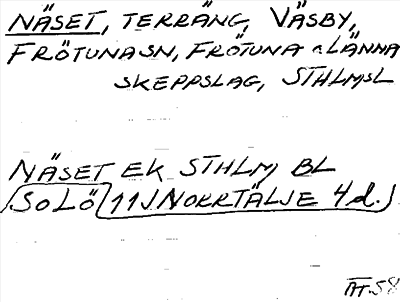 NÄSET, TERRÄNG, VÄSBY,
FRÖTUNASN, FRÖTUNA O LÄNNA
SKEPPSLAG, STHLMSL
NÄSET EK STHLM BL
SOLÖ 11J NORRTÄLJE 4d.
ÄT-58